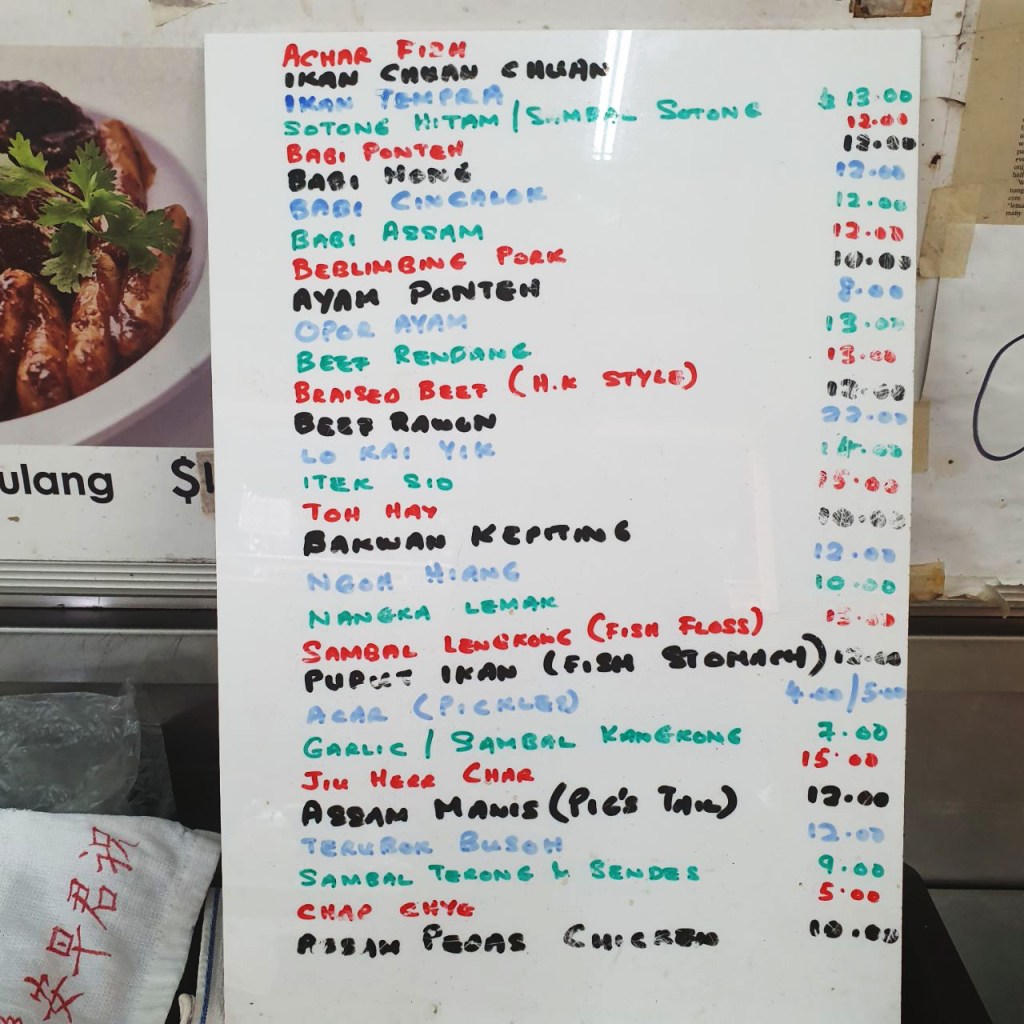 ACHAR FISH
IKAN CHUAN CHUAN
IKAN TEMPRA
SOTONG HITAM / SAMBAL SOTONG $13.00
BABI PONTEH 12.00
BABI HONG 12.00
BABI CINCALOK 12.00
BABI ASSAM 12.00
BEBLIMBING PORK 12.00
AYAM PONTEH 10.00
OPOR AYAM 8.00
BEEF RENDANG 13.00
BRAISED BEEF (H.K STYLE) 13.00
BEEF RAWON 12.00
LO KAI YIK 22.00
ITEK SIO 14.00
TOH HAY 15.00
BAKWAN KEPITING 10.00
NGOH HIANG 12.00
NANGKA LEMAK 10.00
SAMBAL LENGKONG (FISH FLOSS) 13.00
PUPUT IKAN (FISH STOMACH) 12.00
ACAR (PICKLES) 4.00/5.00
GARLIC / SAMBAL KANGKONG 7.00
JIU HERR CHAR 15.00
ASSAM MANIS (PIG'S TAIL) 12.00
TERUBOK BUSOH 12.00
SAMBAL TERONG & SENDES 9.00
CHAP CHYE 5.00
ASSAM PEDAS CHICKEN 10.00
ulang $1
祝君早安